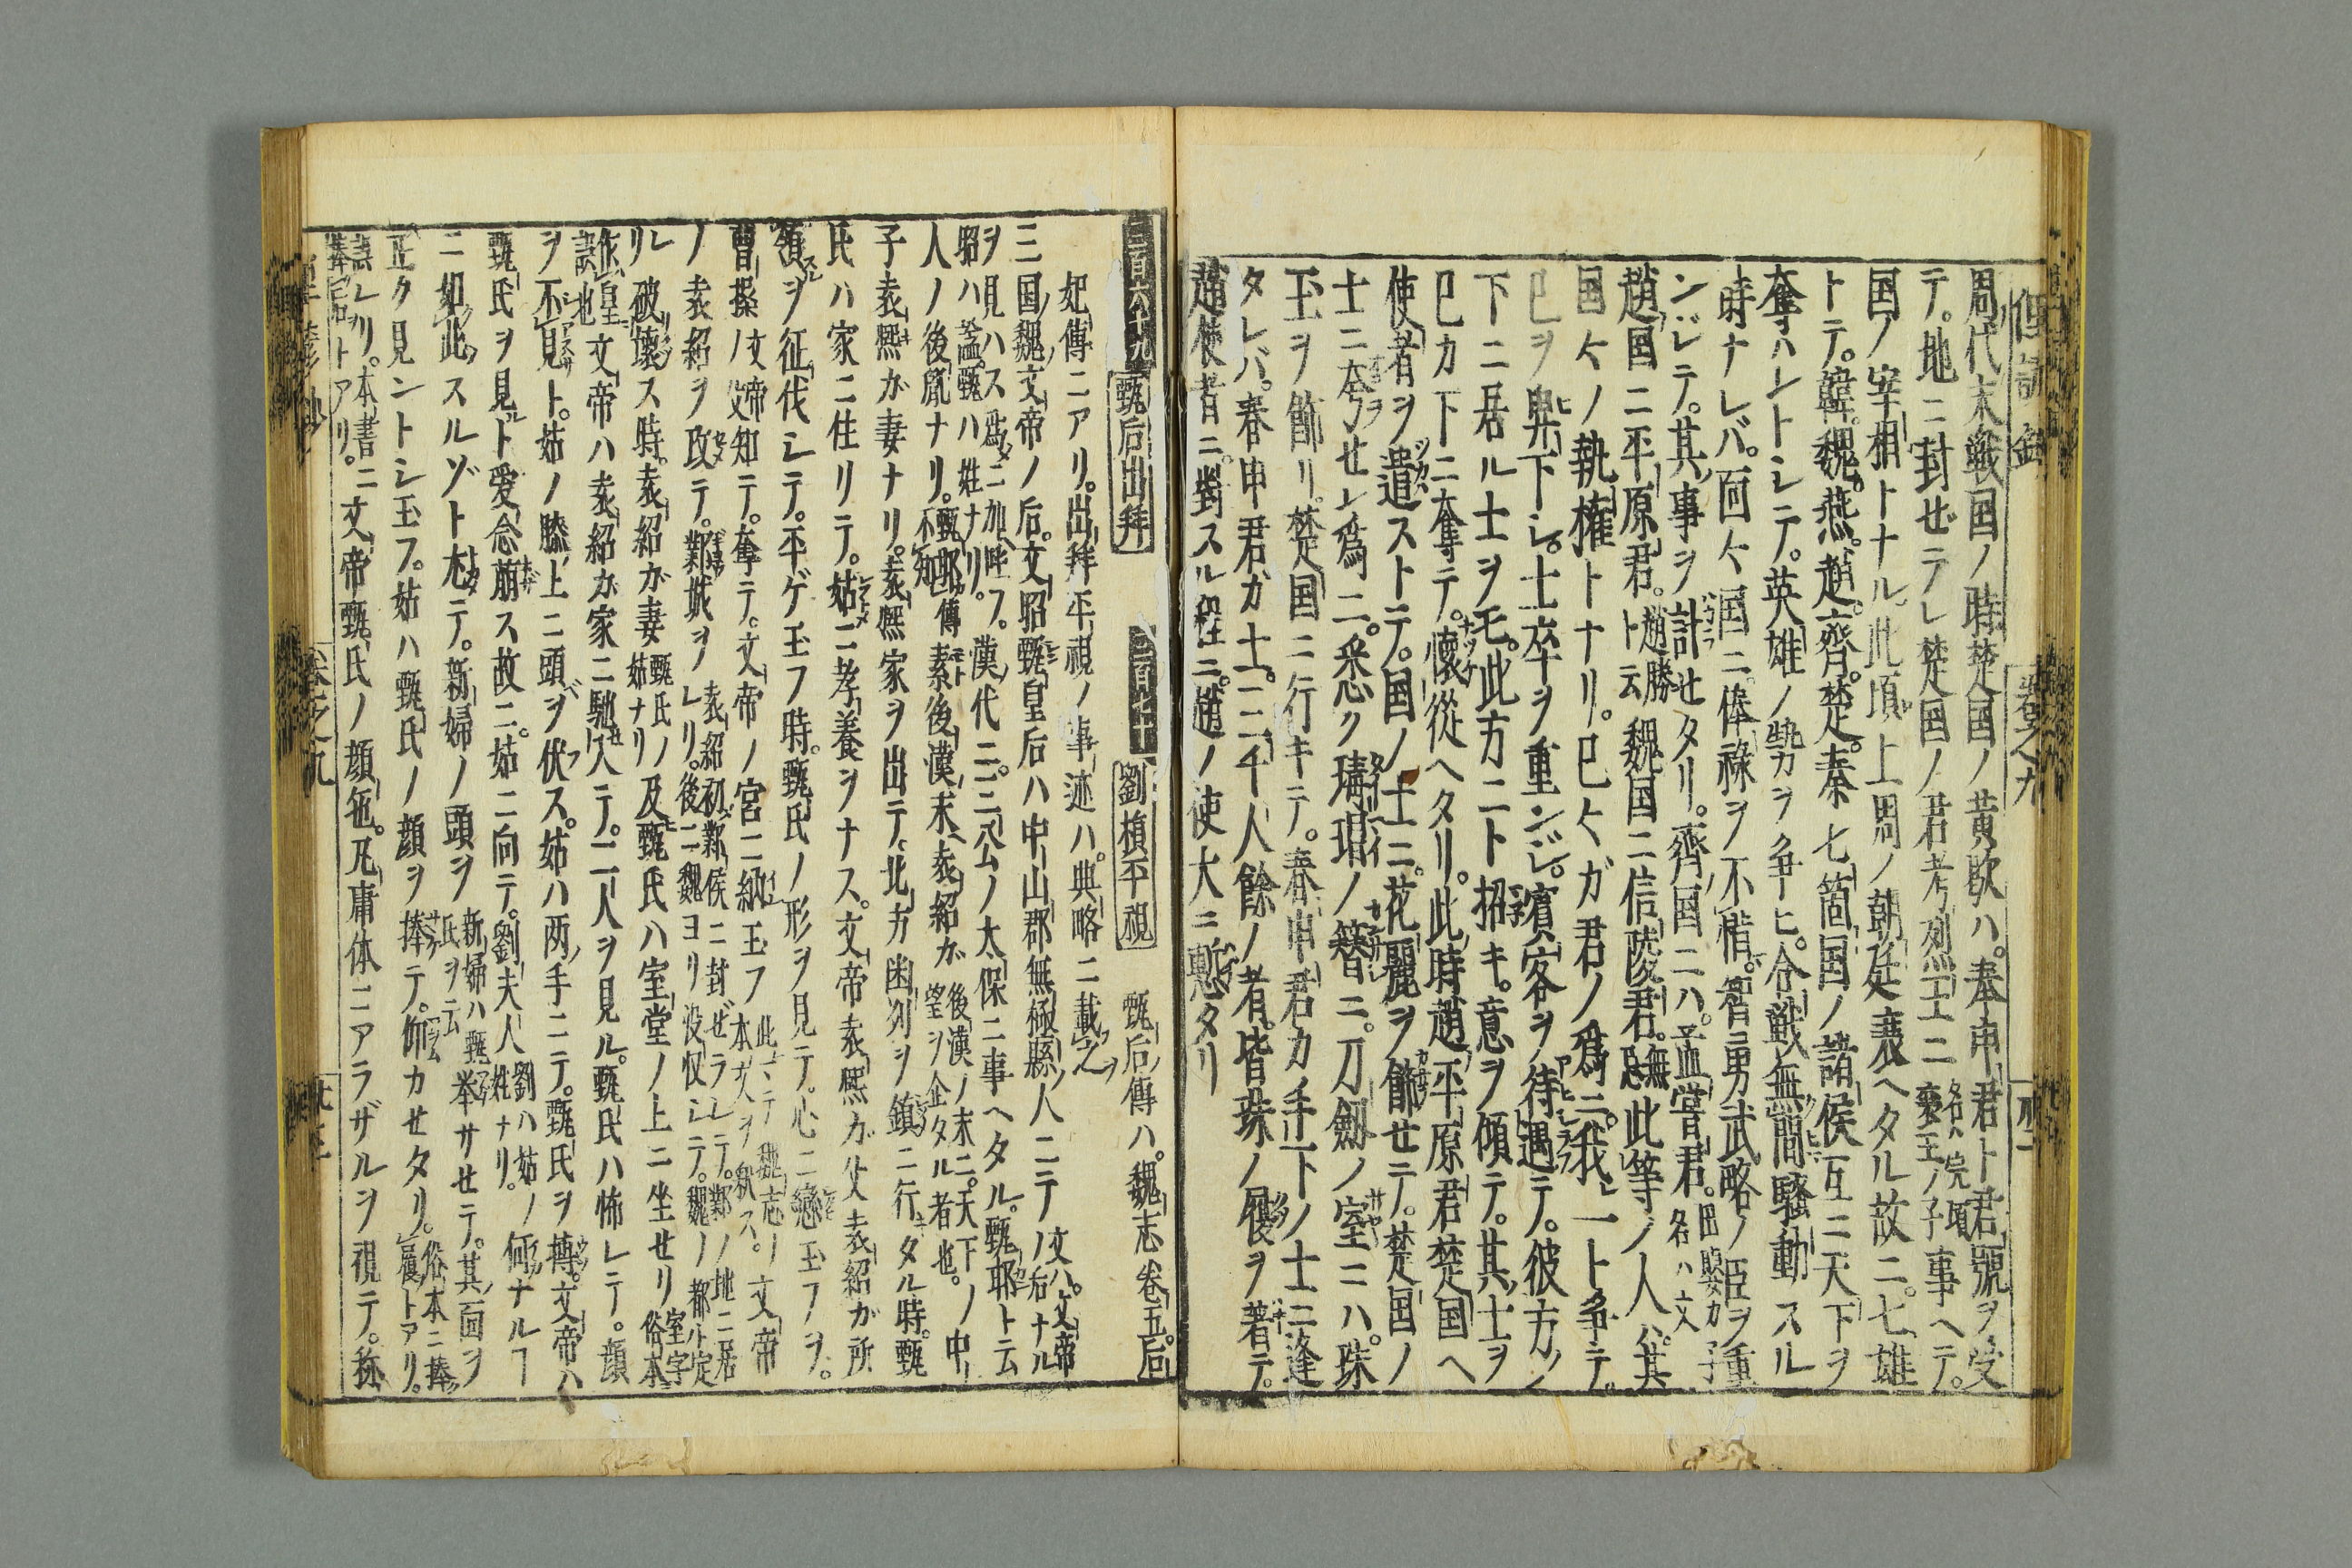 周代末戦国ノ時楚国ノ黄歇ハ。春申君ト君號ヲ受
テ。地ニ封ゼラレ楚国ノ君考烈王ニ名ハ完頃襄王ノ子事ヘテ。
国ノ宰相トナル。此頃上周ノ朝廷衰ヘタル故ニ。七雄
トテ。韓。魏。燕。趙。齊。楚。秦七箇国ノ諸侯互ニ天下ヲ
奪ハントシテ。英雄ノ勢ヲ争ヒ。合戰無間騒動スル
時ナレバ。面々国ニ俸禄ヲ不惜。智勇武略ノ臣ヲ重
ンジテ。其事ヲ計セタリ。齊国ニハ。孟嘗君。田嬰カ子名ハ文
趙国ニ平原君。趙勝ト云魏国ニ信陵君。無忌此等ノ人ハ。其
国々ノ執権トナリ。己々ガ君ノ爲ニ。我一ト争テ。
己ヲ卑下シ。士卒ヲ重ンジ。賓客ヲ待遇テ。彼方ノ
下ニ居ル士ヲモ。此方ニト招キ。意ヲ傾テ。其士ヲ
己カ下ニ奪テ。懐從ヘタリ。此時趙ノ平原君楚国ヘ
使者ヲ遣ストテ。国ノ士ニ。花麗ヲ餝セテ。楚国ノ
士ニ夸ラセン爲ニ。悉ク瑇瑁ノ簪ニ。刀劔ノ室ニハ。珠
玉ヲ餝リ。楚国ニ行キテ。春申君カ手下ノ士ニ逢
タレバ。春申君カ士。三千人餘ノ者。皆珠ノ履ヲ著テ。
趙使者ニ。對スル程ニ。趙ノ使大ニ慙タリ
三百六十九 甄后出拜 三百七十 劉楨平視 甄后傳ハ。魏志卷五。后
妃傳ニアリ。出拜平視ノ事迹ハ。典略ニ載之
三国ノ魏ノ文帝ノ后。文昭甄皇后ハ中山郡無極縣ノ人ニテ文ハ。文帝ノ后ナル
ヲ見ハス爲ニ加ヘ呼フ。漢代ニ。三公ノ太保ニ事ヘタル。甄邯ト云
昭ハ。諡。甄ハ姓ナリ。
人ノ後胤ナリ。甄邯傳不知素後漢ノ末ヘ袁紹が後漢ノ末ニ。天下ノ中望ヲ企タル者也。
子袁熙が妻ナリ。袁熙家ヲ出テ。北方幽州ヲ鎮ニ行タル時。甄
氏ハ家ニ住リテ。姑ニ孝養ヲナス。文帝袁熙が父袁紹が所
領ヲ征伐シテ。平ゲ玉フ時。甄氏ノ形ヲ見テ。心ニ戀玉フヲ。
曹操ノ文帝父知テ。奪テ。文帝ノ宮ニ納玉フ此ニテ魏志ノ本文ヲ釈ス。文帝
ノ袁紹ヲ攻テ。鄴城ヲ袁紹初鄴侯ニ封ゼラレテ。鄴ノ地ニ居レリ。後ニ魏ヨリ没収シテ。魏ノ都ト定
レリ破壊ス時。袁紹が妻甄氏ノ姑ナリ及甄氏ハ室堂ノ上ニ坐セリ室字俗本
作皇誤也文帝ハ袁紹が家ニ馳入テ。二人ヲ見ル。甄氏ハ怖レテ。顔
ヲ不見ト。姑ノ膝上ニ頭ヲ伏ス。姑ハ両手ニテ。甄氏ヲ搏。文帝ハ
甄氏ヲ見ト愛念萠ス故ニ。姑ニ向テ。劉夫人劉ハ姑ノ姓ナリ。何ナルヿ
ニ如此スルゾト尤テ。新婦ノ頭ヲ新婦ハ甄氏ヲ云挙サセテ。其面ヲ
正ク見ントシ玉フ。姑ハ甄氏ノ顔ヲ捧テ。仰カセタリ。俗本ニ捧ヲ展トアリ。
誤レリ。本書ニ捧后トアリ。文帝甄氏ノ顔色。凡庸体ニアラザルヲ視テ。称
卷之九